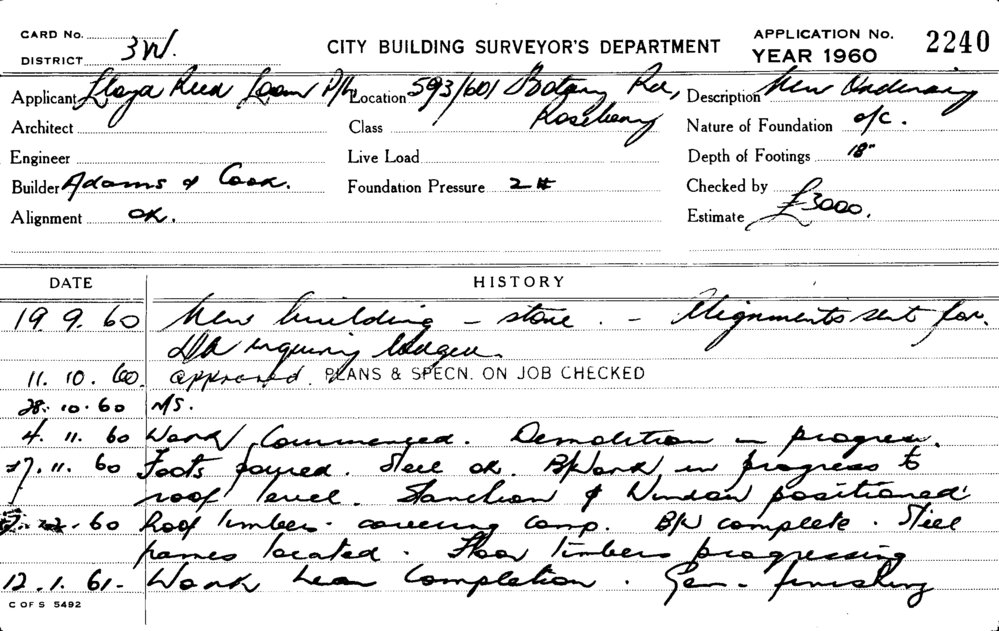 CARD No.
DISTRICT 3W.
CITY BUILDING SURVEYOR'S DEPARTMENT
APPLICATION No. 2240
YEAR 1960
Applicant Lloyd Reed Loom P/L
Location 593/601 Botany Rd, Rosebery
Description New
Architect
Class
Nature of Foundation o/c.
Engineer
Live Load
Depth of Footings 18"
Builder Adams & Cook.
Foundation Pressure 2 #
Checked by
Alignment OK.
Estimate £3000.
DATE HISTORY
19 9. 60 New building - store. - Alignments sent for.
DA inquiry lodged.
11. 10. 60. approved. PLANS & SPECN. ON JOB CHECKED
28. 10. 60 N/S.
4. 11. 60 Work Commenced. Demolition in progress.
11. 60 Foots poured. Steel ok. B/Work in progress to
roof level. Stanchion & Window positioned
60 Roof timbers. covering comp. B/W complete. Steel
frames located. Floor timbers progressing
12. 1. 61- Work near Completion. Gen- finishing
C OF S 5492